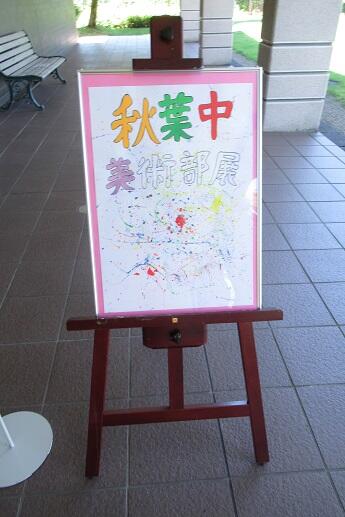 秋葉中
美術部展